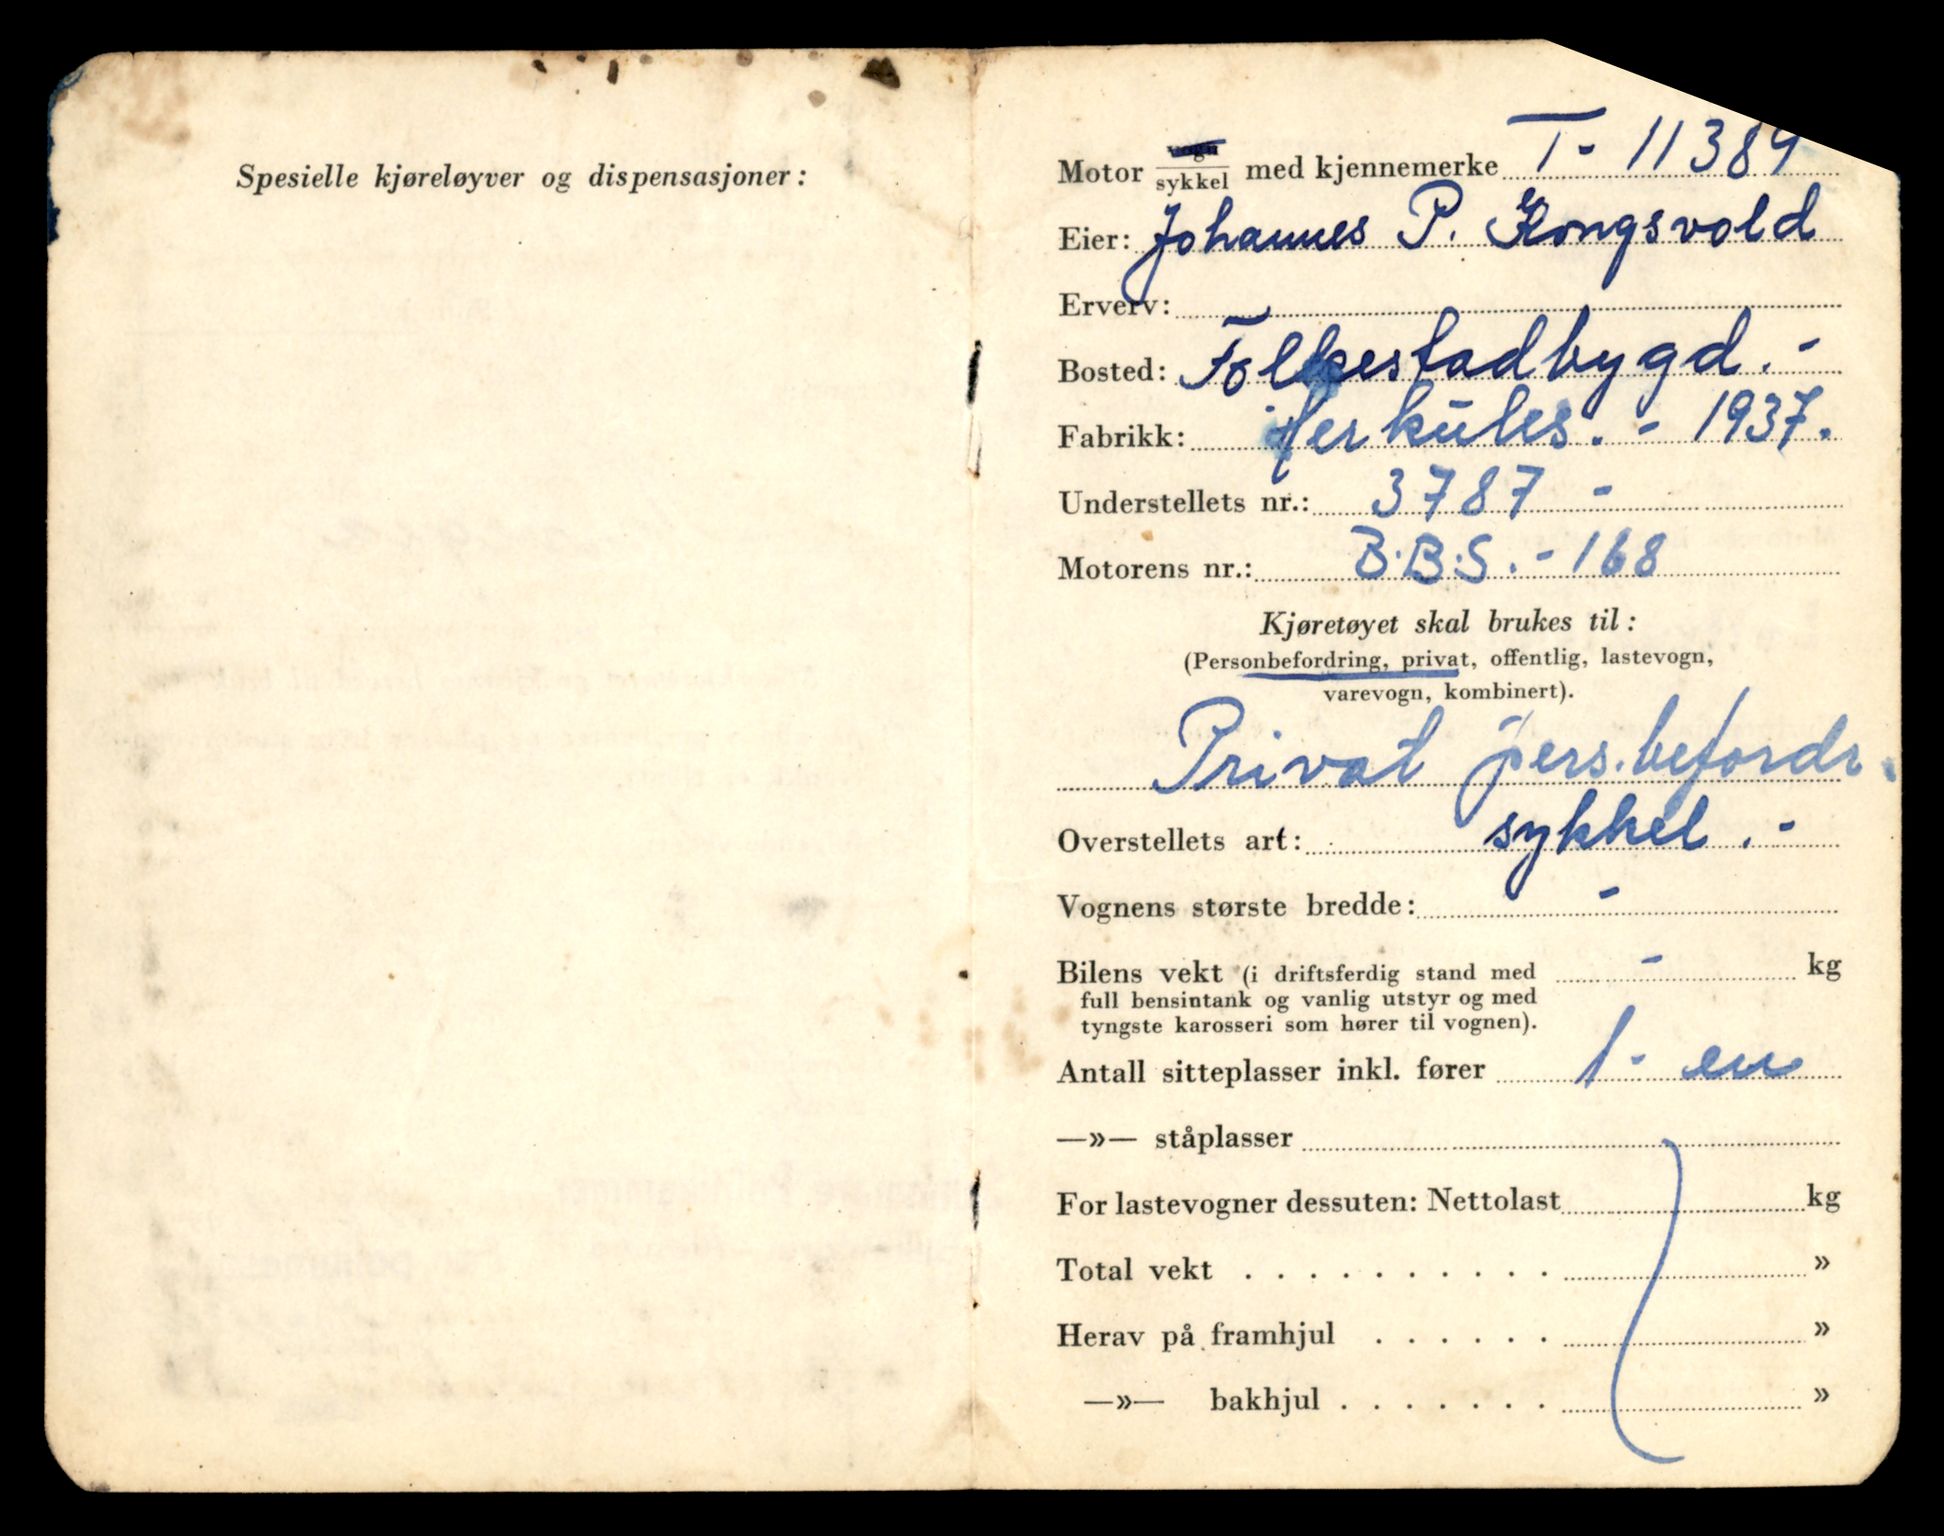 Spesielle kjøreløyver og dispensasjoner:
Motor vogn/sykkel med kjennemerke T- 11389
Eier: Johannes P. Kongsvold
Erverv:
Bosted: Folkestadbygd. -
Fabrikk: Herkules. - 1937.
Understellets nr.: 3787 -
Motorens nr.: B.B.S. - 168
Kjøretøyet skal brukes til:
(Personbefordring, privat, offentlig, lastevogn,
varevogn, kombinert).
Privat pers.befordr.
Overstellets art: sykkel. -
Vognens største bredde: -
Bilens vekt (i driftsferdig stand med - kg
full bensintank og vanlig utstyr og med
tyngste karosseri som hører til vognen).
Antall sitteplasser inkl. fører 1 - en
—»— ståplasser
For lastevogner dessuten: Nettolast kg
Total vekt . . . . . . . . . . »
Herav på framhjul . . . . . . »
—»— bakhjul . . . . . . . »